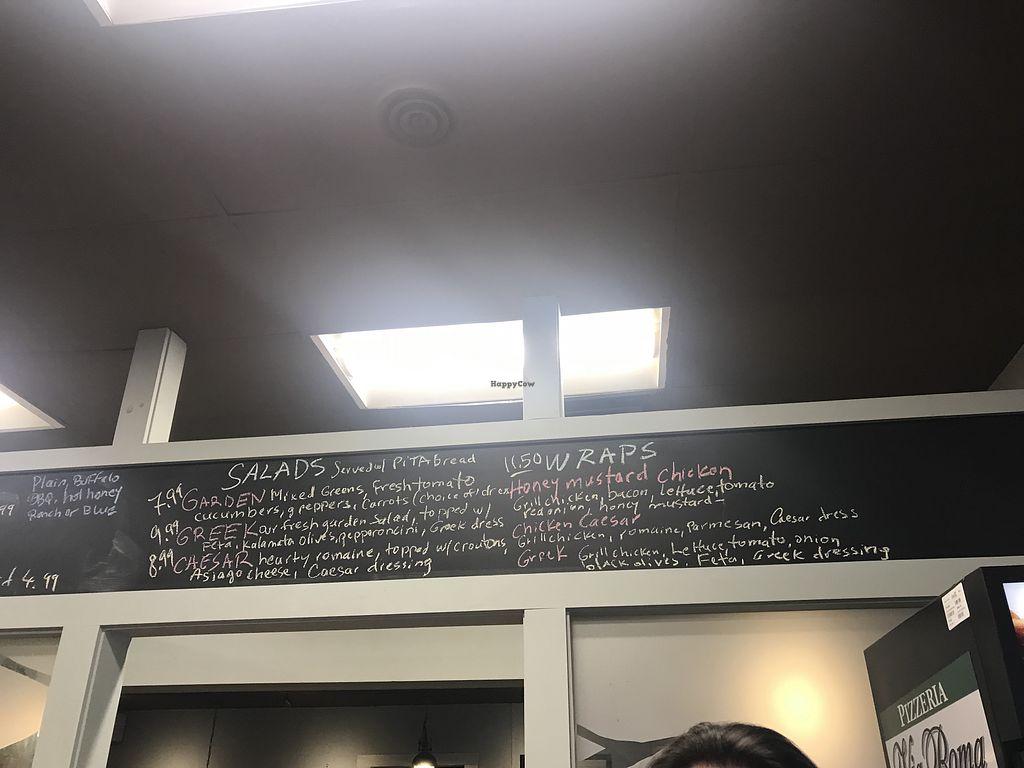 HappyCow
Plain, Buffalo
BBQ, hot honey
Ranch or Blue
99
4.99
SALADS Served w/ PiTA bread
7.99 GARDEN Mixed Greens, fresh tomato
cucumbers, g peppers, carrots (choice of dress
9.99 GREEK our fresh garden salad, topped w/
Feta, Kalamata olives, pepperoncini, Greek dress
8.99 CAESAR hearty romaine, topped w/ croutons,
Asiago cheese, Caesar dressing
11.50 WRAPS
Honey mustard Chicken
Grill chicken, bacon, lettuce, tomato
red onion, honey mustard
Chicken Caesar
Grill chicken, romaine, Parmesan, Caesar dress
Greek Grill chicken, Lettuce, tomato, onion
black olives, Feta, Greek dressing
PIZZERIA
Roma